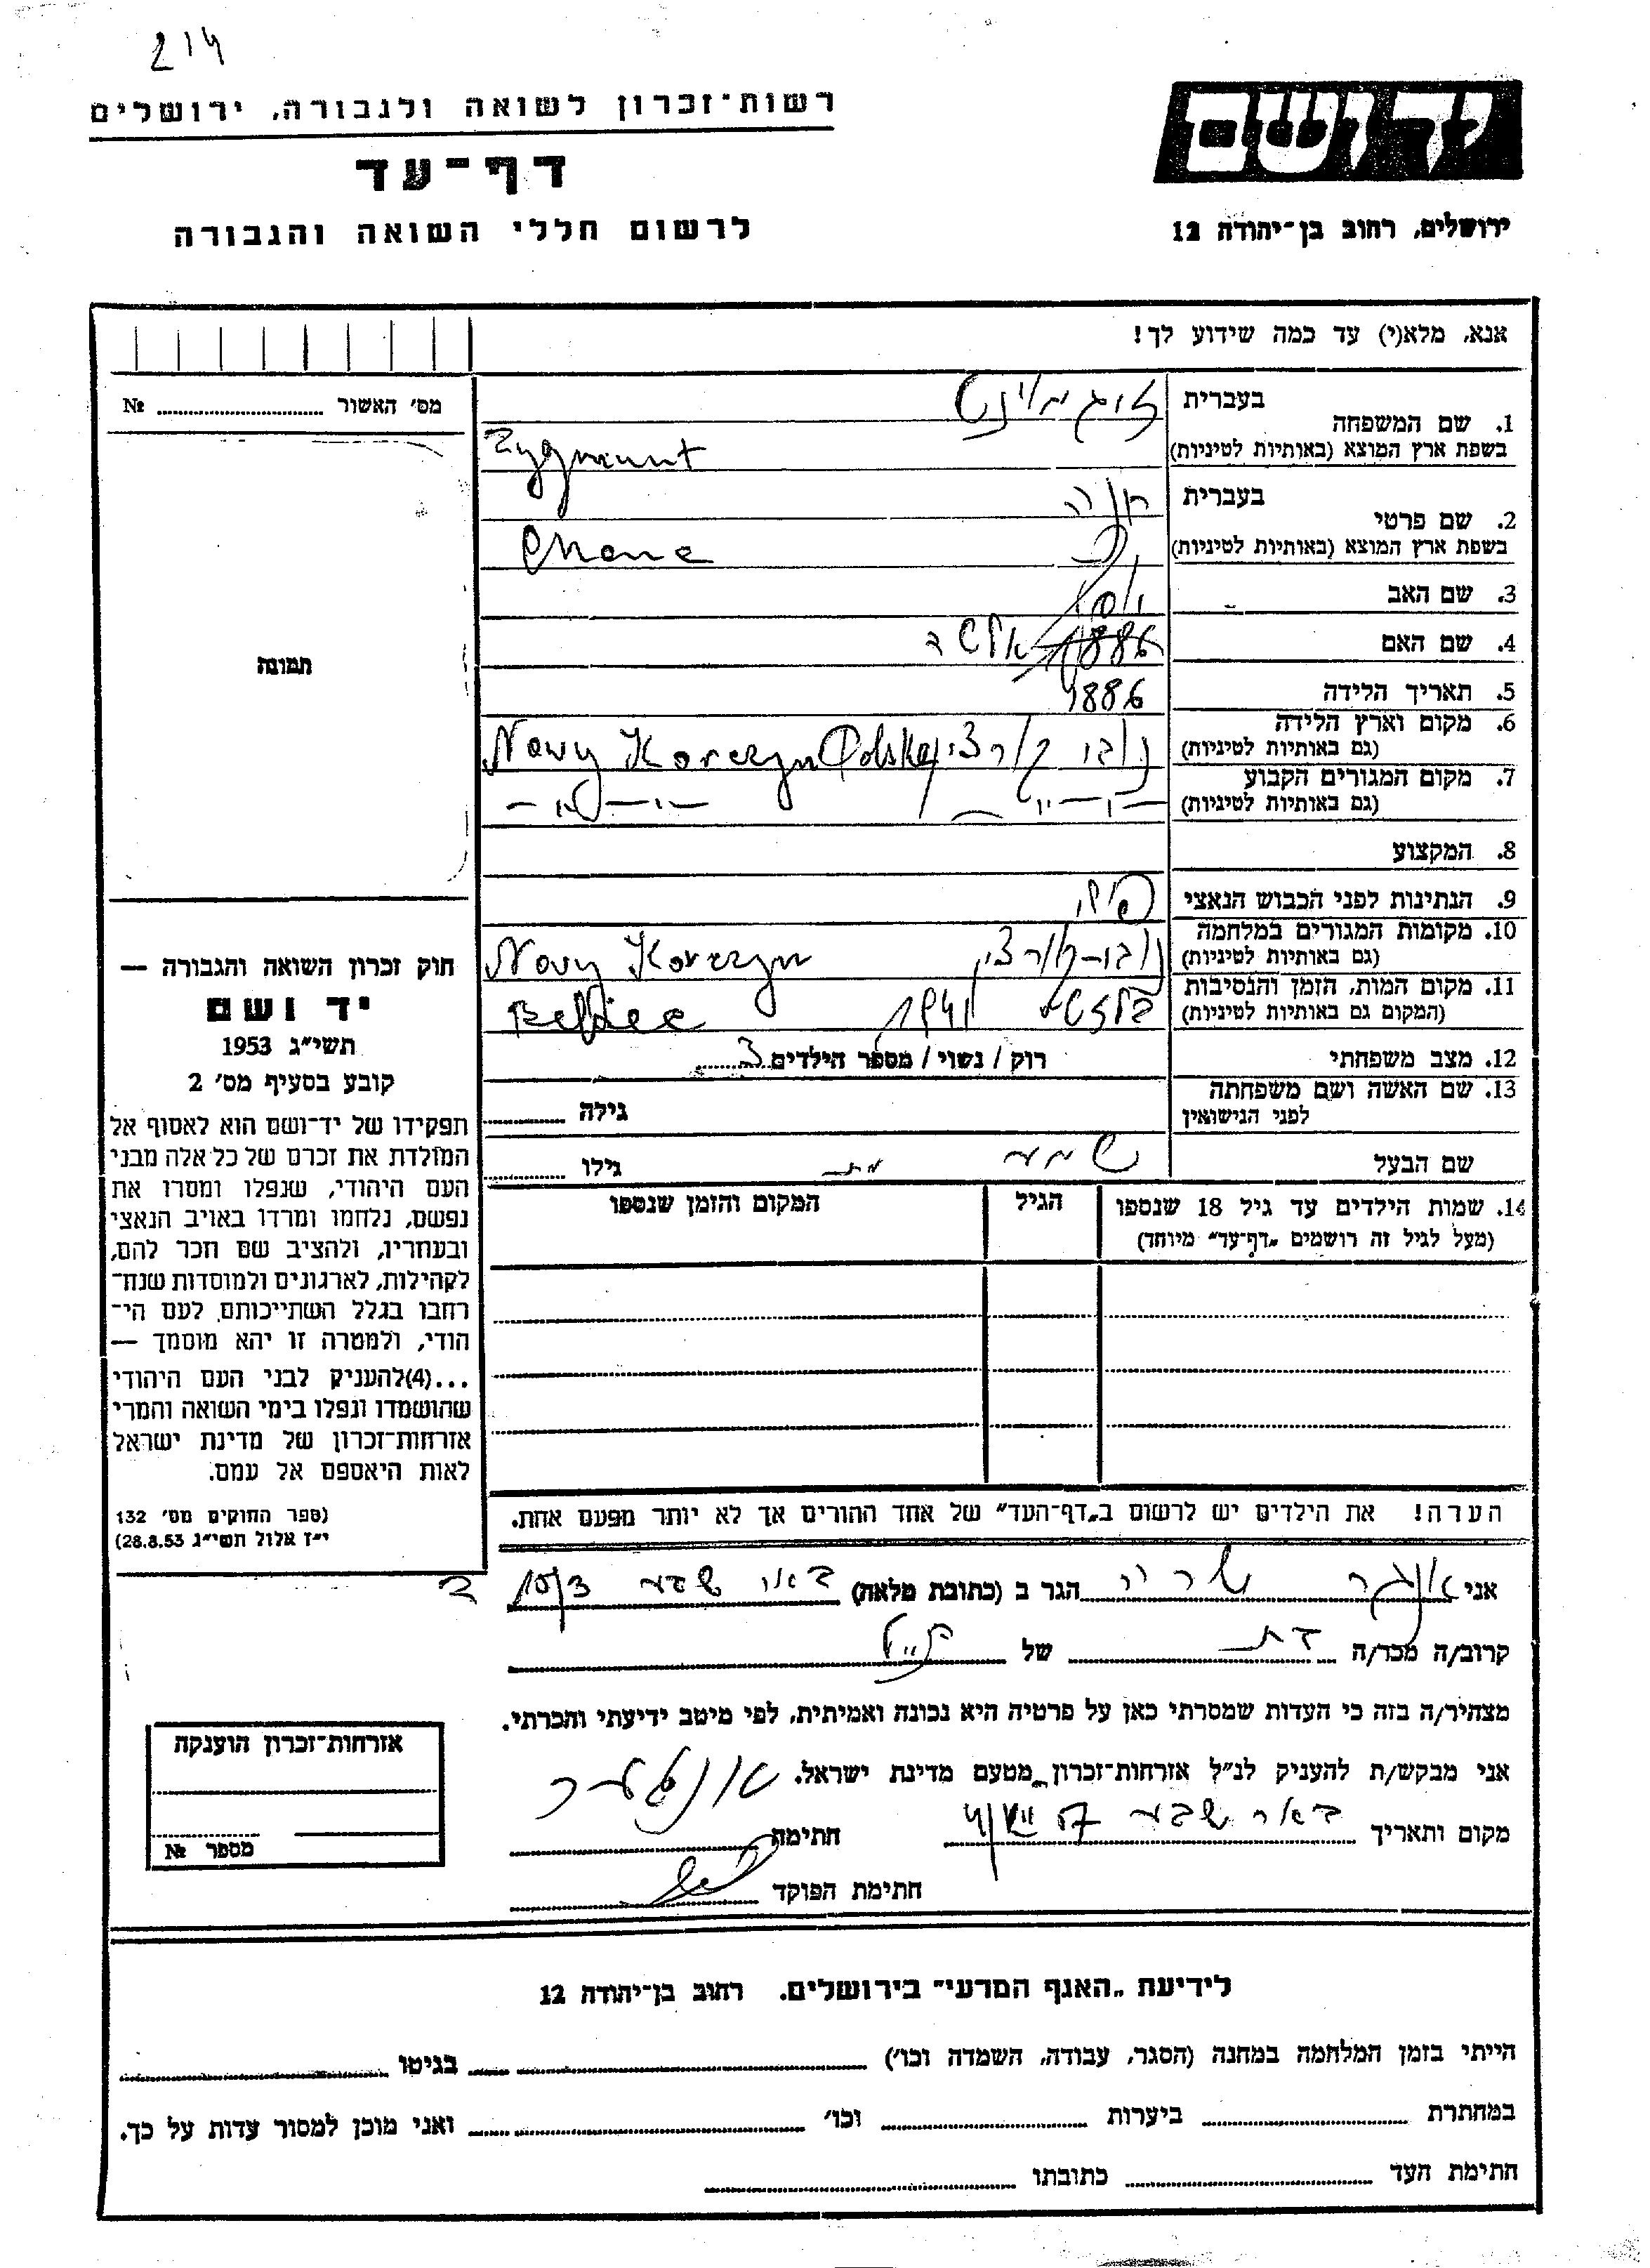 214
רשות־זכרון לשואה ולגבורה, ירושלים
דף־עד
לרשום חללי השואה והגבורה
יד ושם
ירושלים, רחוב בן־יהודה 12
אנא, מלא(י) עד כמה שידוע לך!
מס׳ האשור № 
תמונה
1. שם המשפחה בעברית זיגמונט
בשפת ארץ המוצא (באותיות לטיניות) Zygmunt
2. שם פרטי בעברית חנה
בשפת ארץ המוצא (באותיות לטיניות) Chana
3. שם האב
4. שם האם 1886
5. תאריך הלידה 1886
6. מקום וארץ הלידה (גם באותיות לטיניות) נובי קורצין Nowy Korczyn Polska
7. מקום המגורים הקבוע (גם באותיות לטיניות) — " — — " —
8. המקצוע
9. הנתינות לפני הכבוש הנאצי
10. מקומות המגורים במלחמה (גם באותיות לטיניות) נובי־קורצין Nowy Korczyn
11. מקום המות, הזמן והנסיבות (המקום גם באותיות לטיניות) 1941
12. מצב משפחתי רוק / נשוי / מספר הילדים 3
13. שם האשה ושם משפחתה לפני הנישואין גילה
שם הבעל גילו
14. שמות הילדים עד גיל 18 שנספו (מעל לגיל זה רושמים „דף־עד״ מיוחד) הגיל המקום והזמן שנספו
הערה! את הילדים יש לרשום ב„דף־העד״ של אחד ההורים אך לא יותר מפעם אחת.
חוק זכרון השואה והגבורה —
יד ושם
תשי״ג 1953
קובע בסעיף מס׳ 2
תפקידו של יד־ושם הוא לאסוף אל
המולדת את זכרם של כל אלה מבני
העם היהודי, שנפלו ומסרו את
נפשם, נלחמו ומרדו באויב הנאצי
ובעוזריו, ולהציב שם וזכר להם,
לקהילות, לארגונים ולמוסדות שנח־
רבו בגלל השתייכותם לעם הי־
הודי, ולמטרה זו יהא מוסמך —
...(4)להעניק לבני העם היהודי
שהושמדו ונפלו בימי השואה והמרי
אזרחות־זכרון של מדינת ישראל
לאות היאספם אל עמם.
(ספר החוקים מס׳ 132
י״ז אלול תשי״ג 28.8.53)
אני אונגר שרה הגר ב (כתובת מלאה) באר שבע
קרוב/ה מכר/ה בת של
מצהיר/ה בזה כי העדות שמסרתי כאן על פרטיה היא נכונה ואמיתית, לפי מיטב ידיעתי והכרתי.
אני מבקש/ת להעניק לנ״ל אזרחות־זכרון מטעם מדינת ישראל.
מקום ותאריך באר שבע חתימה
חתימת הפוקד
אזרחות־זכרון הוענקה
מספר №
לידיעת „האגף המדעי״ בירושלים. רחוב בן־יהודה 12
הייתי בזמן המלחמה במחנה (הסגר, עבודה, השמדה וכו׳) בגיטו
במחתרת ביערות וכו׳ ואני מוכן למסור עדות על כך.
חתימת העד כתובתו